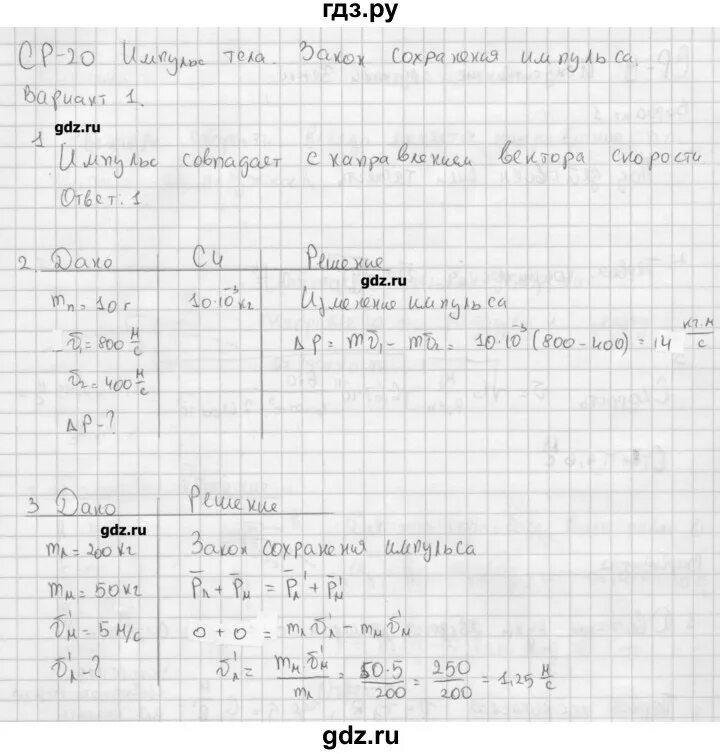 гдз.ру
СР-20 Импульс тела. Закон сохранения импульса.
Вариант 1.
gdz.ru
1
Импульс совпадает с направлением вектора скорости
Ответ: 1
2. Дано | СИ | Решение
gdz.ru
mп = 10 г | 10·10⁻³ кг | Изменение импульса
ῡ₁ = 800 м/с | ΔP = mῡ₁ - mῡ₂ = 10·10⁻³ (800 - 400) = 14 кг·м/с
ῡ₂ = 400 м/с
ΔP - ?
3 Дано | Решение
gdz.ru
mл = 200 кг | Закон сохранения импульса
mм = 50 кг | P̄л + P̄м = P̄л' + P̄м'
ῡм' = 5 м/с | 0 + 0 = mл ῡл' - mм ῡм'
ῡл' - ? | ῡл' = mм·ῡм'/mл = 50·5/200 = 250/200 = 1,25 м/с
gdz.ru